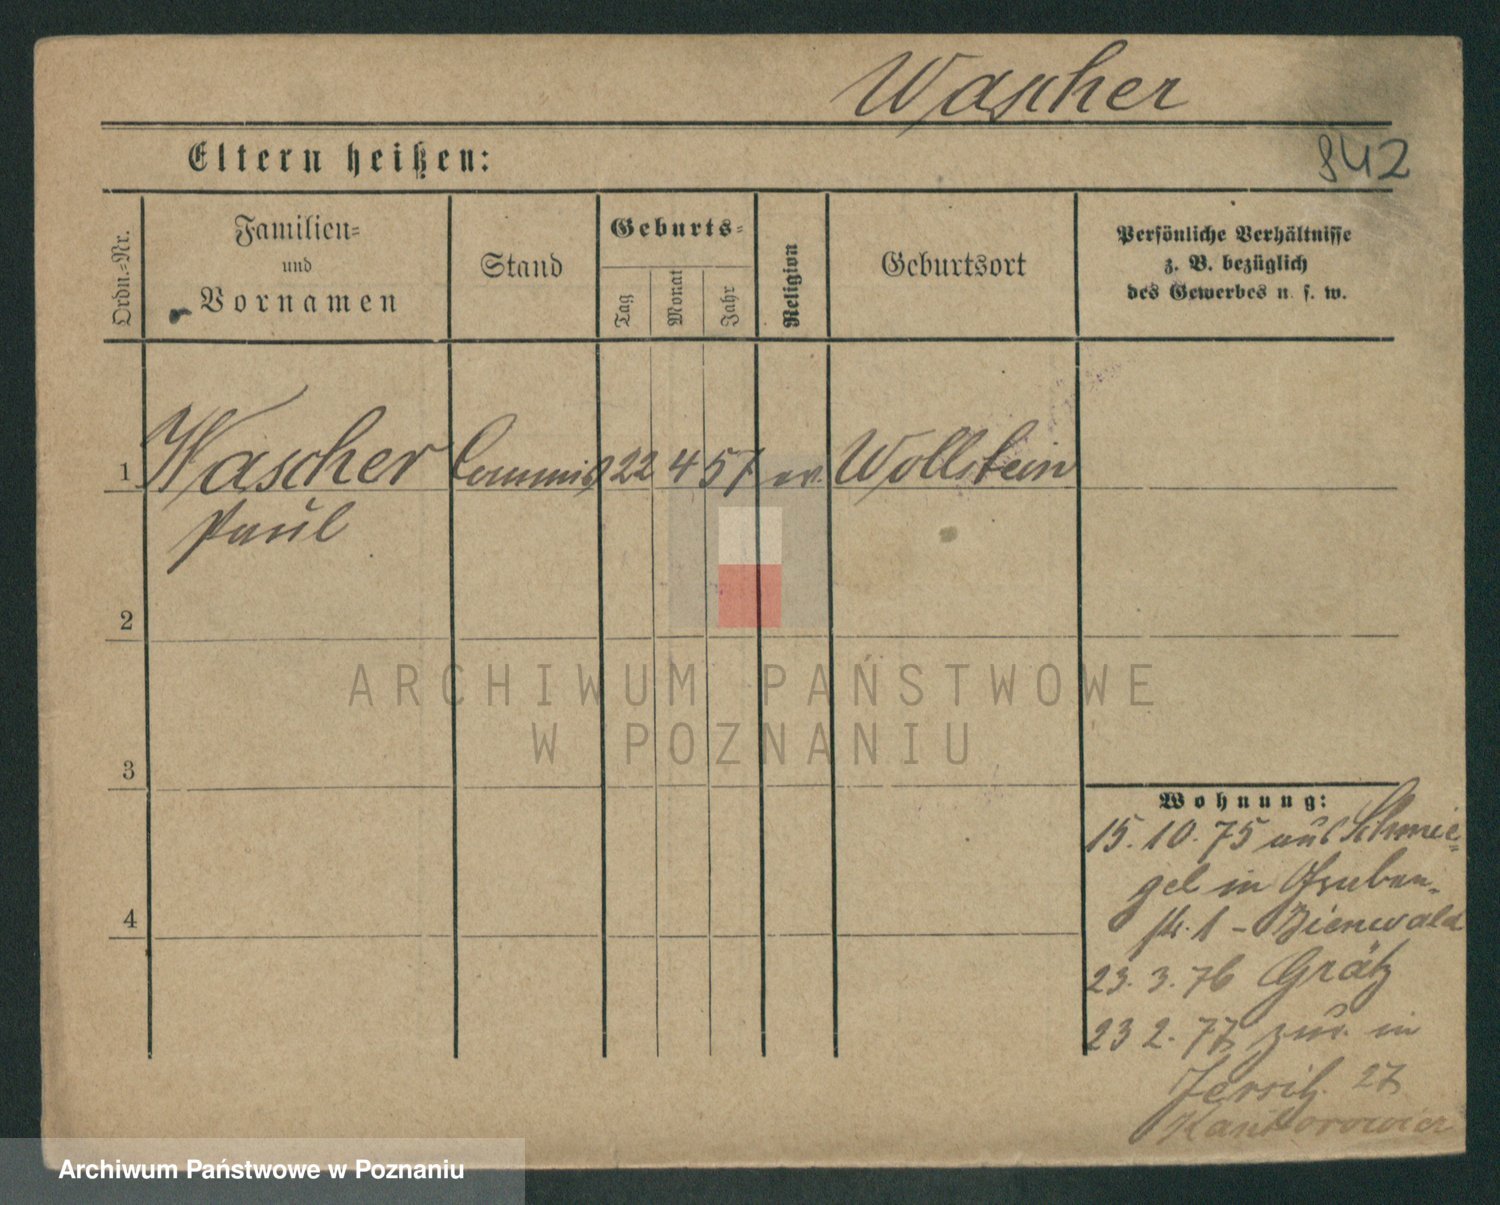 Wascher
842
Eltern heißen:
Ordn.=Nr.
Familien=
und
Vornamen
Stand
Geburts=
Tag
Monat
Jahr
Religion
Geburtsort
Persönliche Verhältnisse
z. B. bezüglich
des Gewerbes u. s. w.
1 Wascher Commis 22 4 57 ev. Wollstein
Paul
2
3
4
Wohnung:
15. 10. 75 aus Schmie=
gel in Gruben=
str. 1 - Bienwald
23. 3. 76 Grätz
23 2. 77 zur. in
Jersitz 27
Kantorowicz
ARCHIWUM PAŃSTWOWE
W POZNANIU
Archiwum Państwowe w Poznaniu